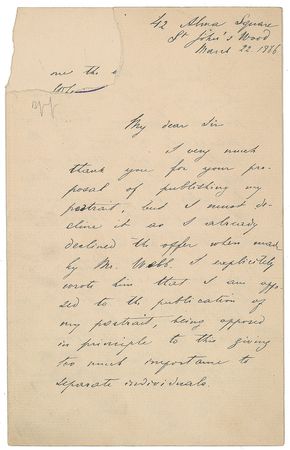 42 Alma Square
St John's Wood
March 22 1886
one the
My dear Sir
I very much
thank you for your pro-
posal of publishing my
portrait, but I must de-
cline it as I already
declined the offer when made
by Mr. Webb. I explicitely
wrote him that I am oppo-
sed to the publication of
my portrait, being opposed
in principle to this giving
too much importance to
separate individuals.